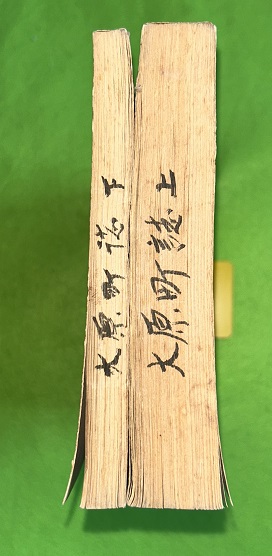 大原町誌上
大原町誌下